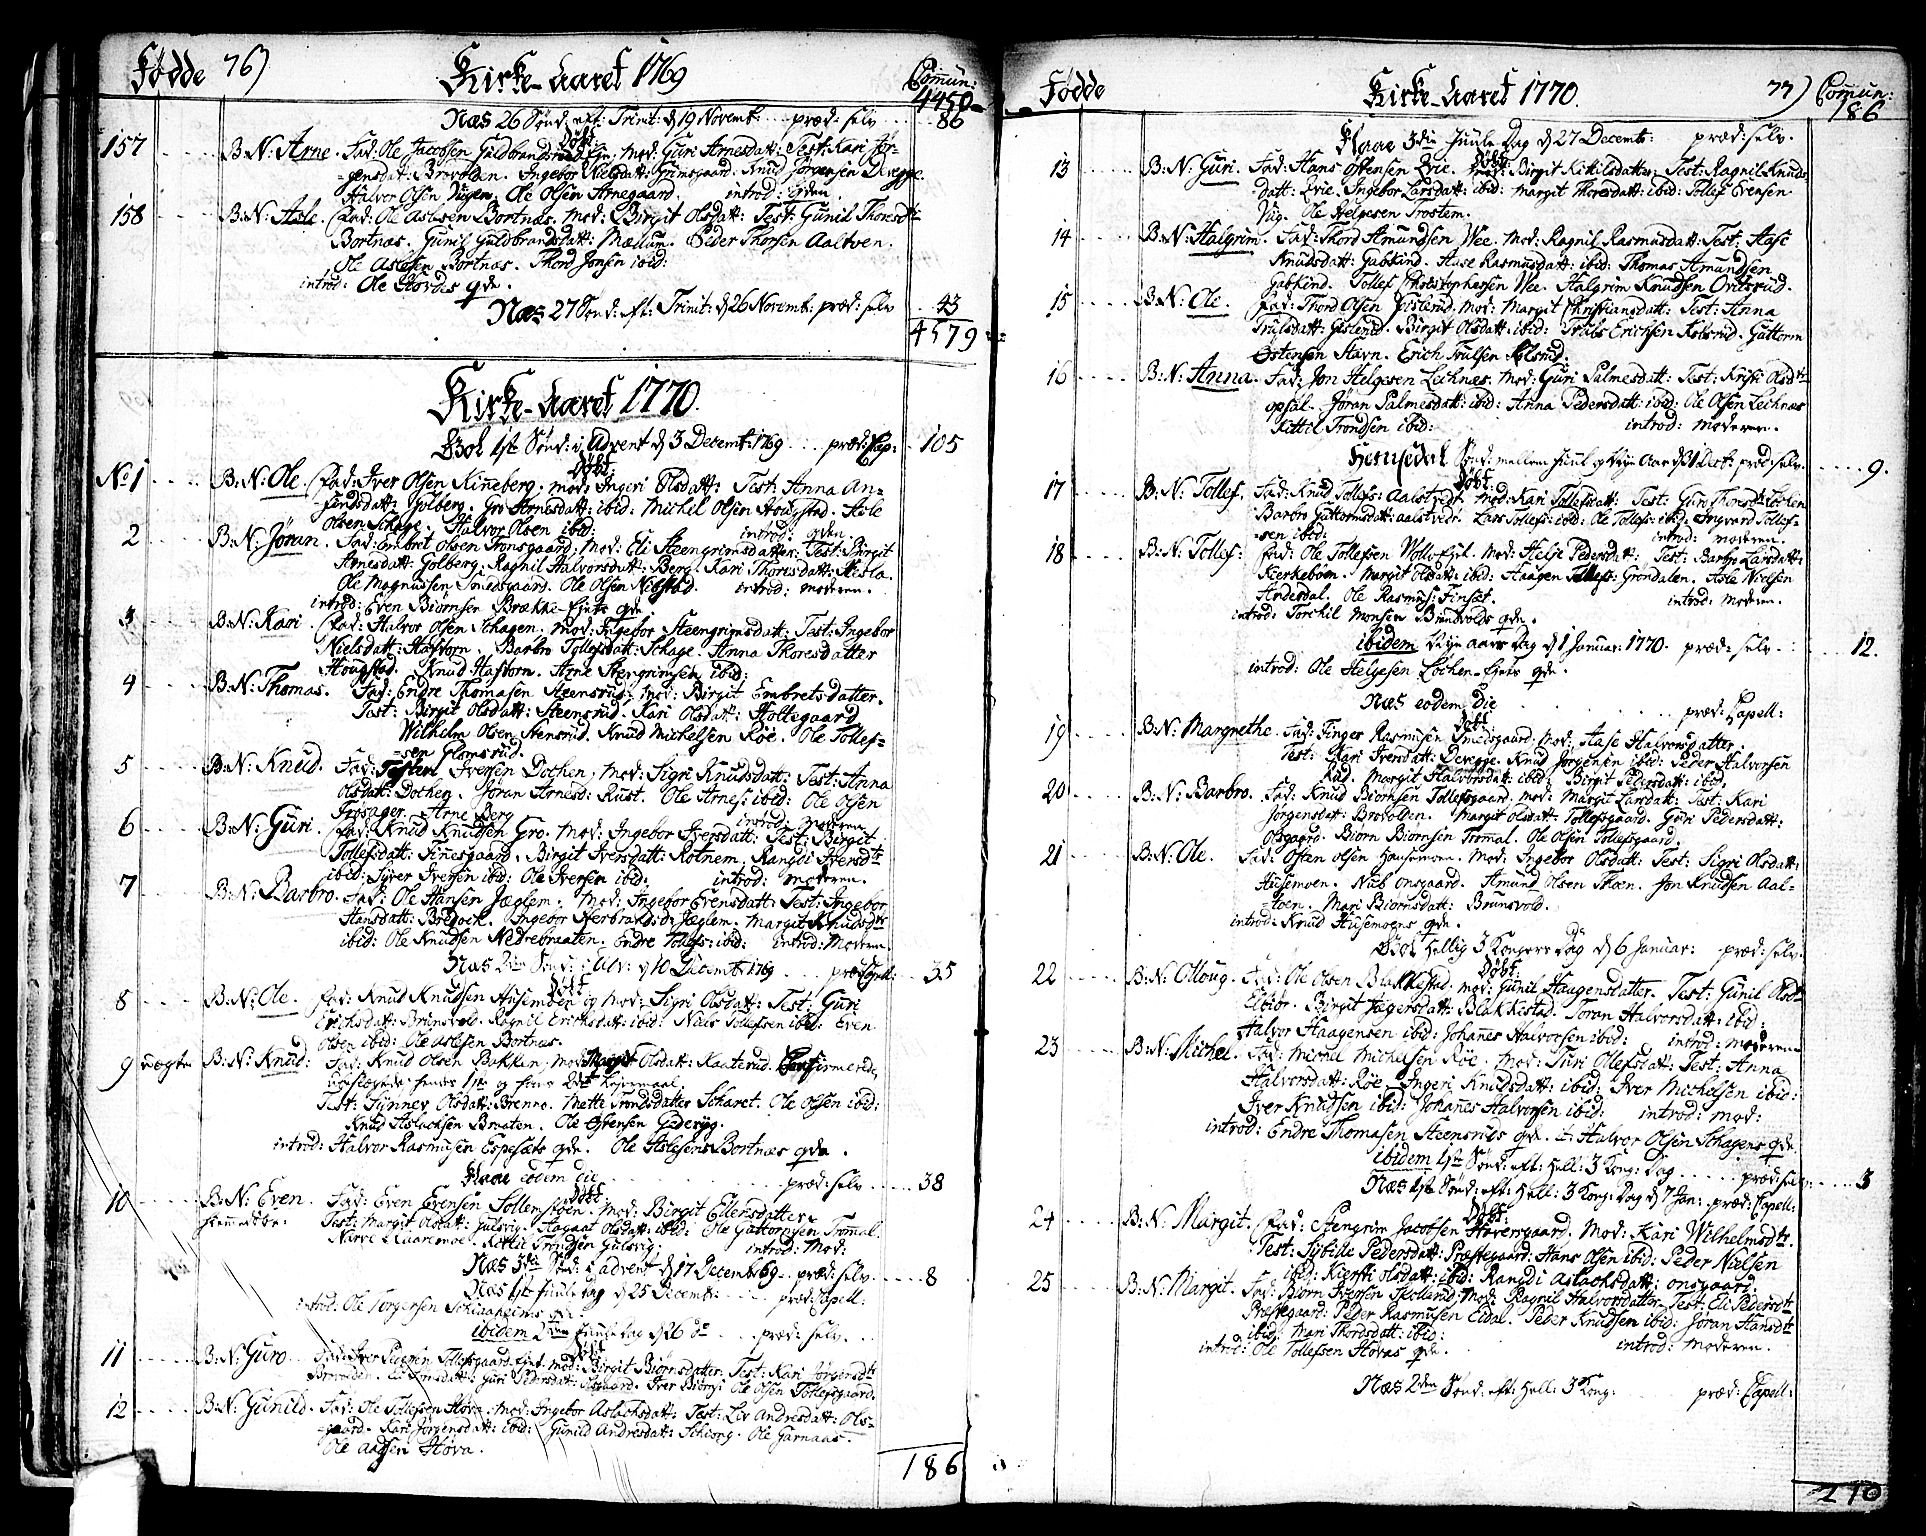 Fødde 76) Kirke-Aaret 1769 Comun:
4450
Næs 26 Sønd: eft: Trinit: d 19 Novemb: præd: selv 86
Døbt:
157 B:N: Arne. Fad: Ole Jacobsen Guldbrandsrud Ejn. mod: Guri Arnesdatt: Test: Kari Jør-
gensdat: Brevolden. Ingebor Nielsdatt: Grimsgaard. Knud Jørgensen Deregge.
Halvor Olsen Dugen. Ole Olsen Arnegaard introd: qden
158 B:N: Asle. Fad: Ole Aslesen Bortnæs. Mod: Birgit Olsdatt: Test: Gunil Thoresdtr
Bortnæs. Gunil Guldbrandsdatt: Mællum. Peder Thorsen Aaltven.
Ole Aslesen Bortnæs. Thord Jonsen ibid:
introd: Ole Hordes qde.
Næs 27 Sønd: eft: Trinit: d 26 Novemb: præd: selv 43
4579
Kirke-Aaret 1770.
Gol 1ste Sønd: i Advent d 3 Decemb: 1769 præd: Cap: 105
Døbt:
No 1 B:N: Ole. Fad: Iver Olsen Kinneberg. mod: Ingeri Olsdatt: Test: Anna An-
findsdatt: Golberg. Gro Arnesdatt: ibid: Michel Olsen Hougstad. Asle
Olsen Schage. Halvor Olsen ibid: introd: qden.
2 B:N: Jøran. Fad: Embret Olsen Tronsgaard; Mod: Eli Steengrimsdatter: Test: Birgit
Arnesdatt: Golberg. Ragnil Halvorsdatt: Berg. Kari Thoresdatt: Hesla.
Ole Magnudsen Smedsgaard. Ole Olsen Nibstad. introd: moderen.
introd: Even Biørnsen Brække-Ejets qde.
3 B:N: Kari. Fad: Halvor Olsen Schagen. mod: Ingebor Steengrimsdatt: Test: Ingebor
Nielsdatt: Hafborn. Barbro Tollefsdatt: Schage. Anna Thoresdatter
Hougstad. Knud Hafborn. Arne Stengrimsen ibid:
4 B:N: Thomas. Fad: Endre Thomasen Steensrud; mod: Birgit Embretsdatter.
Test: Birgit Olsdatt: Steensrud. Kari Olsdatt: Holtegaard
Wilhelm Olsen Stensrud. Knud Michelsen Røe. Ole Tollef-
sen Glomsrud.
5 B:N: Knud. Fad: Iversen Dothen, mod: Sigri Knudsdatt: Test: Anna
Olsdatt: Dotheg. Jøran Arnesd: Rust. Ole Arnes: ibid: Ole Olsen
Trosager. Arne Berg introd: moderen.
6 B:N: Guri. Fad: Knud Knudsen Gro. Mod: Ingebor Iversdatt: Test: Birgit
Tollefsdatt: Finesgaard. Birgit Iversdatt: Rotnem. Rangdi Iversdtr
ibid: Syver Iversen ibid: Ole Iversen ibid: introd: moderen.
7 B:N: Barbro. Fad: Ole Hansen Jæglem. Mod: Ingebor Evensdatt: Test: Ingebor
Hansdatt: Bredock. Ingebor Herbrandsd: Jæglem. Margit Knudsdtr
ibid: Ole Knudsen Nedrebraaten. Endre Tollefs: ibid: introd: Moderen.
Næs 2den Sønd: i Adv: d 10 Decemb: 1769 præd: Capell: 35
Døbt:
8 B:N: Ole. Fad: Knud Knudsen Husemoen og mod: Sigri Olsdatt: Test: Guri
Erichsdatt: Brunsvold. Ragnil Erichsdatt: ibid: Niels Tollefsen ibid: Even
Olsen ibid: Ole Aslesen Bortnæs.
9 uægte B:N: Knud: Fad: Knud Olsen Bakken, mod: Margit Olsdatt: Kaaterud.
begges 1ste og hans 2det Lejermaal.
Test: Synnev Olsdatt: Brenno. Mette Trondsdatter Scharet. Ole Olsen ibid:
Knud Aslachsen Braaten. Ole Espensen Gederyg.
introd: Halvor Rasmusen Espesæts qde. Ole Aslesens Bortnæs qde.
Flaae eodem die præd: selv 38
Døbt:
10 B:N: Even. Fad: Even Evensen Sollemsmoen. Mod: Birgit Eilersdatter.
hiemmedøbt: Test: Margit Olsdatt: Gulsvig. Aagaat Olsdatt: ibid: Ole Guttormsen Trommal.
Narve Kaaremoe. Kittil Trondsen Gulsvig. introd: Mod:
Næs 3die Sønd: i advent d 17 Decemb: 69 præd: selv 8
Næs 1ste Juule dag d 25 Decemb: præd: Capell:
introd: Ole Torgersen Schiaanheims qde
ibidem 2den Juule dag d 26 do præd: selv
Døbt:
11 B:N: Guro. Fad: Iver Tollefsgaard Ejet. mod: Birgit Biørnsdatter. Test: Kari Jørgensdtr
Brevolden. Guri Pedersdatt: Olsgaard. Iver Biørns: Ole Olsen Tollefsgaard.
12 B:N: Gunild. Fad: Ole Tollefsen Hova. mod: Ingebor Aslachsdatt: Test: Liv Andresdatt: Ols-
gaard. Kari Jørgensdatt: ibid: Gunild Andresdatt: Schiong. Ole Garnaas.
Ole Aadsen Hova.
186
Fødde Kirke-Aaret 1770. 77) Comun:
186
Flaae 3die Juule Dag d 27 Decemb: præd: selv.
Døbt:
13 B:N: Guri. Fad: Hans Ostensen Evie. mod: Birgit Kittilsdatter. Test: Ragnil Knuds
datt: Evie. Ingebor Larsdatt: ibid: Margit Thoresdatt: ibid: Tollef Evensen
Vug. Ole Helgesen Trostem.
14 B:N: Halgrim. Fad: Thord Amundsen Wee. Mod: Ragnil Rasmusdatt: Test: Aase
Knudsdatt: Gabkind. Aase Rasmusdatt: ibid: Thomas Amundsen
Gabkind. Tollef Christophersen Wee. Halgrim Knudsen Ovitsrud.
15 B:N: Ole. Fad: Thord Olsen Gislerud. Mod: Margit Christiansdatt: Test: Anna
Trulsdatt: Gislerud. Birgit Olsdatt: ibid: Truls Erichsen Kolsrud. Guttorm
Østensen Stavn. Erich Trulsen Kolsrud.
16 B:N: Anna. Fad: Jon Helgesen Lechnæs. Mod: Guri Palmesdatt: Test: Kristi Olsdtr
opsal. Jøran Palmesdatt: ibid: Anna Pedersdatt: ibid: Ole Olsen Lechnæs
Kittil Trondsen ibid: introd: moderen.
Hemsedal Sønd: mellem Juul og Nyt Aar d 31 Decb: præd: selv. 9.
Døbt:
17 B:N: Tollef. Fad: Knud Tollefs: Aalstvedt. Mod: Kari Tollefsdatt: Test: Guri Thoresdtr Løchen
Barbro Guttormsdatt: aalstvedt. Lars Tollefs: ibid: Ole Tollefs: ibid: Ingvard Tollef-
sen ibid: introd: moderen.
18 B:N: Tollef: Fad: Ole Tollefsen Wolle Ejet. mod: Helje Pedersdatt: Test: Barbro Larsdatt:
Kierkebøen. Margit Olsdatt: ibid: Haagen Tollefs: Grøndalen. Asle Nielsen
Andersdal. Ole Rasmus: Finset. introd: moderen.
introd: Torchil Monsen Brusvolds qde.
ibidem Nyt aars dag d 1 Januar: 1770. præd: selv. 12.
introd: Ole Helgesen Løchen-Ejets qde.
Næs eodem die præd: Capell:
Døbt:
19 B:N: Margrethe. Fad: Finger Rasmusen Smedsgaard. Mod: Aase Halvorsdatter.
Test: Kari Iversdatt: Deregge. Knud Jørgensen ibid: Peder Halvorsen
Rud. Margit Halvorsdatt: ibid: Birgit Pedersdatt: ibid.
20 B:N: Barbro. Fad: Knud Biørnsen Tollefsgaard. mod: Margit Larsdatt: Test: Kari
Jørgensdatt: Brevolden. Margit Olsdatt: Tollefsgaard. Guri Pedersdatt:
Olsgaard. Biørn Biørnsen Trommal. Ole Olsen Tollefsgaard.
21 B:N: Ole. Fad: Osten Olsen Husemoen. mod: Ingebor Olsdatt: Test: Sigri Olsdatt:
Husemoen. Niels onsgaard. Amund Olsen Thoen. Jon Knudsen Aal-
toen. Mari Biørnsdatt: Brunsvold.
introd: Knud Husemoens qde.
Gol Hellig 3 Kongers Dag d 6 Januar: præd: selv.
Døbt:
22 B:N: Olloug. Fad: Ole Olsen Blakkestad. mod: Gunil Haagensdatter. Test: Gunil Olsdtr
Eibior. Birgit Jagersdatt: Blakkestad. Joran Halvorsdatt: ibid:
Halvor Haagensen ibid: Johannes Halvorsen ibid: introd: moderen
23 B:N: Michel. Fad: Michel Michelsen Røe. mod: Turi Ollefsdatt: Test: Anna
Halvorsdatt: Røe. Ingeri Knudsdatt: ibid: Iver Michelsen ibid:
Iver Knudsen ibid: Johannes Halvorsen ibid: introd: mod:
introd: Endre Thomasen Steensruds qde. it: Halvor Olsen Schagens qde.
ibidem 1ste Sønd: eft: Hell: 3 Kong: Dag præd: selv 3
Næs 1ste Sønd: eft: Hell: 3 Kong: Dag d 7 Jan: præd: Capell:
Døbt:
24 B:N: Margit. Fad: Stengrim Jacobsen Haversgaard. Mod: Kari Wilhelmsdtr.
Test: Sybille Pedersdatt: Præstegaard. Hans Olsen ibid: Peder Nielsen
ibid: Kiersti Olsdatt: ibid: Rangdi Aslachsdatt: onsgaard.
25 B:N: Margit. Fad: Biørn Iversen Holland. Mod: Ragnil Halvorsdatter. Test: Eli Pedersdtr
Præstegaard. Peder Rasmusen Eidal. Peder Knudsen ibid: Joran Hansdtr
ibid: Mari Thordsdatt: ibid: introd: moderen.
introd: Ole Tollefsen Hovas qde.
Næs 2den Sønd: eft: Hell: 3 Kong: præd: Capell:
210